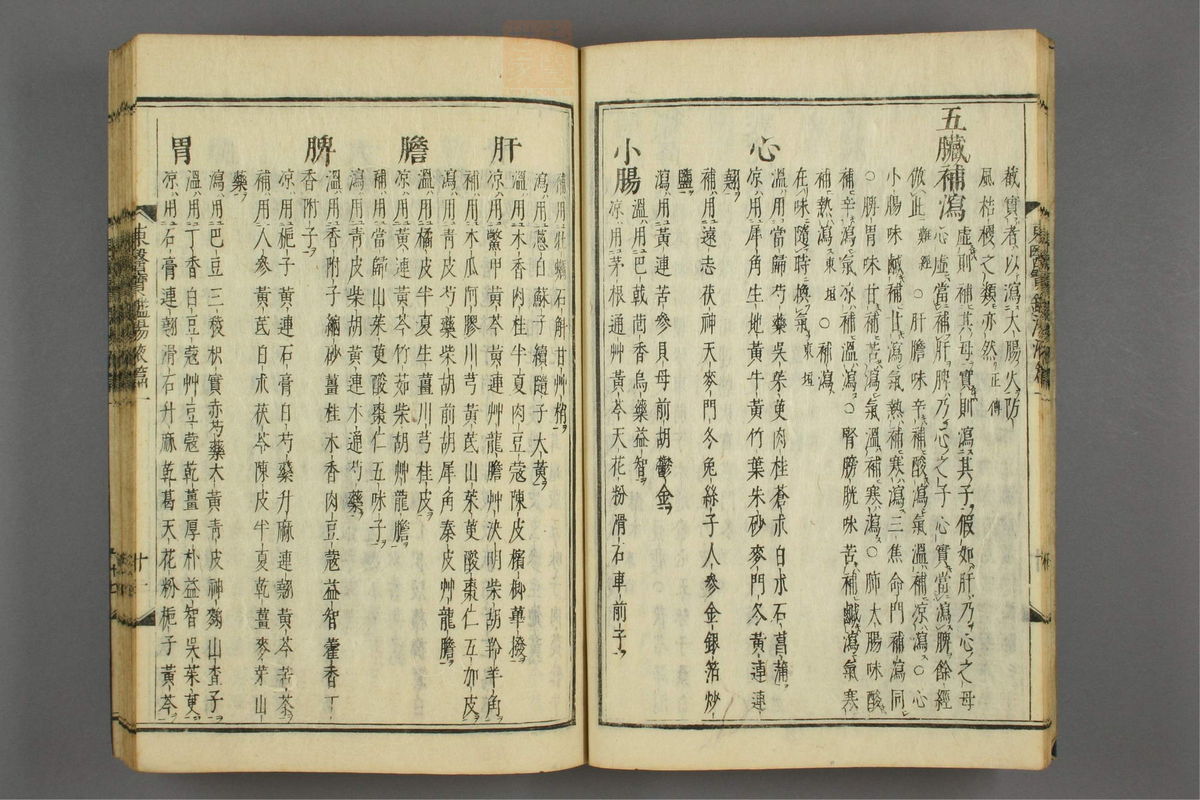 截實者以瀉大腸火防
風桔梗之類亦然正傳
五臟補瀉
虛則補其母實則瀉其子假如肝乃心之母
心虛當補肝脾乃心之子心實當瀉脾餘經
倣此難經〇肝膽味辛補酸瀉氣溫補凉瀉〇心
小腸味鹹補甘瀉氣熱補寒瀉三焦命門補瀉同
〇脾胃味甘補苦瀉氣溫補寒瀉〇肺大腸味酸
補辛瀉氣凉補溫瀉〇腎膀胱味苦補鹹瀉氣寒
補熱瀉東垣〇補瀉
在味隨時換氣東垣
心
溫用當歸芍藥吳茱萸肉桂蒼朮白朮石菖蒲
凉用犀角生地黃牛黃竹葉朱砂麥門冬黃連連
翹
補用遠志茯神天麥門冬兔絲子人參金銀箔炒
鹽
瀉用黃連苦參貝母前胡鬱金
小腸
溫用巴戟茴香烏藥益智
凉用茅根通艸黃芩天花粉滑石車前子
補用牡蠣石斛甘艸梢
瀉用葱白蘇子續隨子大黃
肝
溫用木香肉桂半夏肉豆蔻陳皮檳榔蓽撥
凉用鱉甲黃芩黃連艸龍膽艸決明柴胡羚羊角
補用木瓜阿膠川芎黃芪山茱萸酸棗仁五加皮
瀉用靑皮芍藥柴胡前胡犀角秦皮艸龍膽
膽
溫用橘皮半夏生薑川芎桂皮
凉用黃連黃芩竹茹柴胡艸龍膽
補用當歸山茱萸酸棗仁五味子
瀉用靑皮柴胡黃連木通芍藥
脾
溫用香附子縮砂薑桂木香肉豆蔻益智藿香丁
香附子
凉用梔子黃連石膏白芍藥升麻連翹黃芩苦茶
補用人參黃芪白朮茯苓陳皮半夏乾薑麥芽山
藥
瀉用巴豆三稜枳實赤芍藥大黃靑皮神麴山査子
胃
溫用丁香白豆蔻艸豆蔻乾薑厚朴益智吳茱萸
凉用石膏連翹滑石升麻乾葛天花粉梔子黃芩
東醫寶鑑湯液篇一